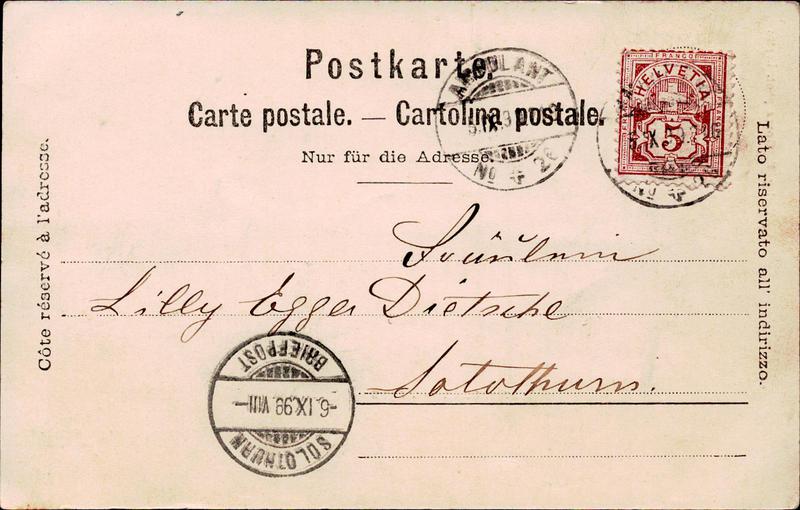 Postkarte.
Carte postale. — Cartolina postale.
Nur für die Adresse.
Côte réservé à l'adresse.
Lato riservato all' indirizzo.
AMBULANT
No 26
FRANCO
HELVETIA
5
No
Fräulein
Lilly Egger Dietsche
Solothurn.
BRIEFPOST
-6.IX.99.VIII-
SOLOTHURN